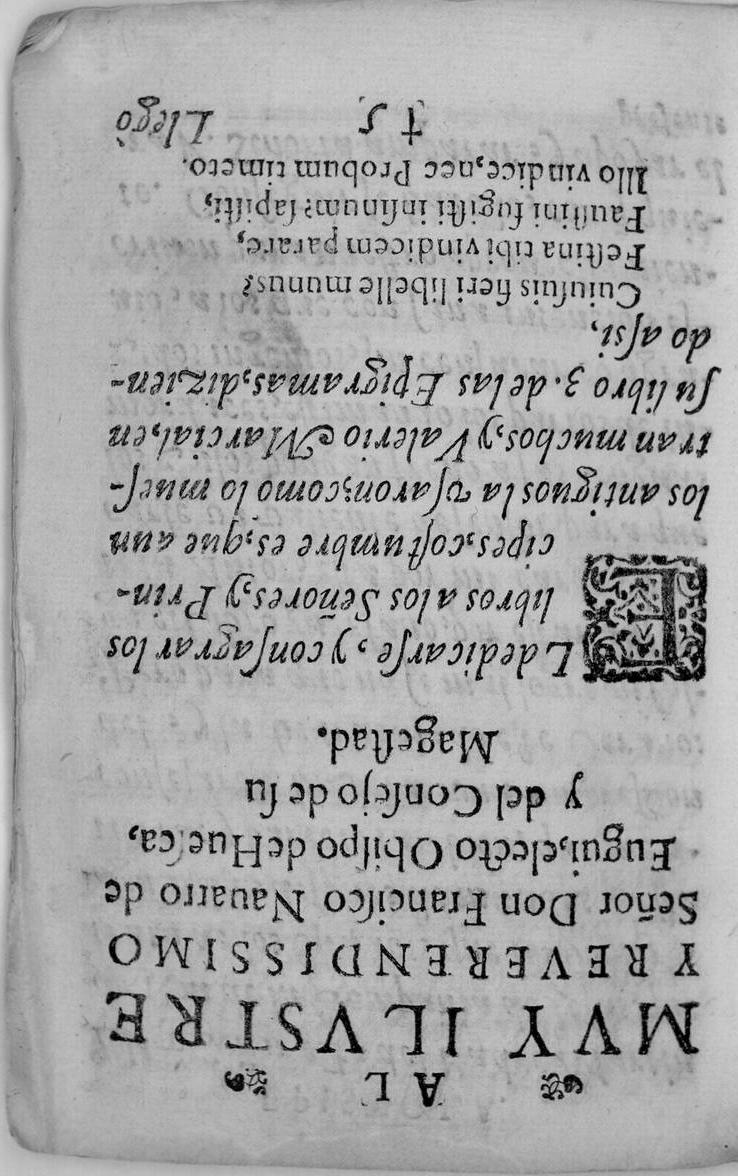 AL
MVY ILVSTRE
Y REVERENDISSIMO
Señor Don Franciſco Nauarro de
Eugui, electo Obiſpo de Hueſca,
y del Conſejo de ſu
Mageſtad.
EL dedicarſe, y conſagrar los
libros a los Señores, y Prin-
cipes, coſtumbre es, que aun
los antiguos la vſaron; como lo mueſ-
tran muchos, y Valerio Marcial, en
ſu libro 3. de las Epigramas, dizien-
do aſsi,
Cuiuſuis fieri libelle munus?
Feſtina tibi vindicem parare,
Fauſtini fugiſti in ſinum? ſapiſti,
Illo vindice, nec Probum timeto.
† 5 Llegò